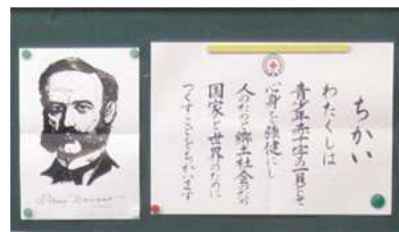 ちかい
わたくしは
青少年赤十字の一員として
心身を強健にし
人のためと郷土社会のため
国家と世界のために
つくすことをちかいます
Henry Dunant